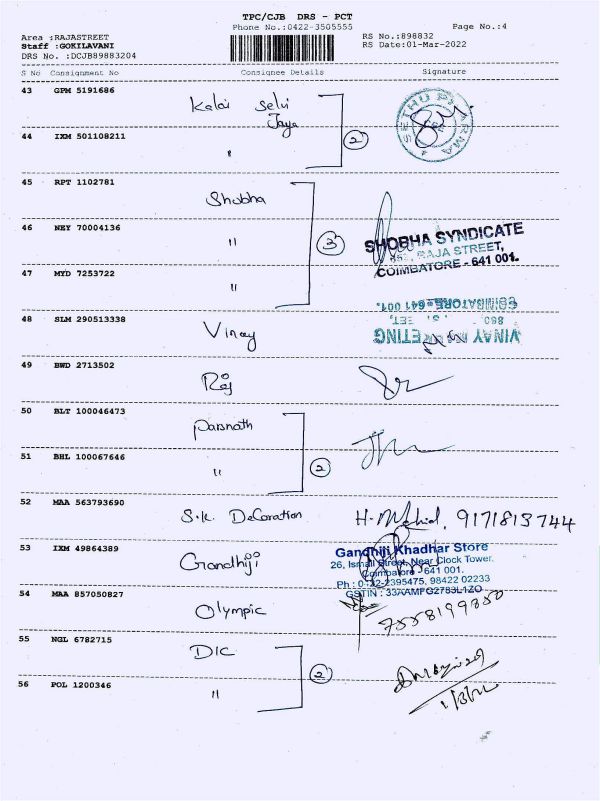 TPC/CJB DRS - PCT
Phone No.:0422-3505555
Page No.:4
Area :RAJASTREET
Staff :GOKILAVANI
DRS No. :DCJB89883204
RS No.:898832
RS Date:01-Mar-2022
S No Consignment No Consignee Details Signature
43 GPM 5191686 Kalai Selvi
Jaya
SETHU PHARMA
44 IXM 501108211 " 2
45 RPT 1102781 Shobha
46 NEY 70004136 " 3
SHOBHA SYNDICATE
RAJA STREET,
COIMBATORE - 641 001.
47 MYD 7253722 "
COIMBATORE-641 001.
48 SLM 290513338 Vinay
VINAY MARKETING
49 BWD 2713502 Raj
50 BLT 100046473 Parsnath
51 BHL 100067646 " 2
52 MAA 563793690 S.K. Decoration H. 9171813744
53 IXM 49864389 Gandhiji
Gandhiji Khadhar Store
26, Ismail Street, Near Clock Tower.
Coimbatore - 641 001.
Ph : 0422-2395475, 98422 02233
GSTIN : 33AAMFG2783L1ZO
54 MAA 857050827 Olympic
55 NGL 6782715 DIC
56 POL 1200346 " 2
1/3/22